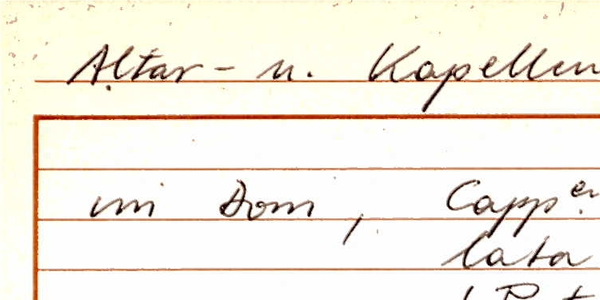 Altar- u. Kapellen
im Dom, Capp.
lata